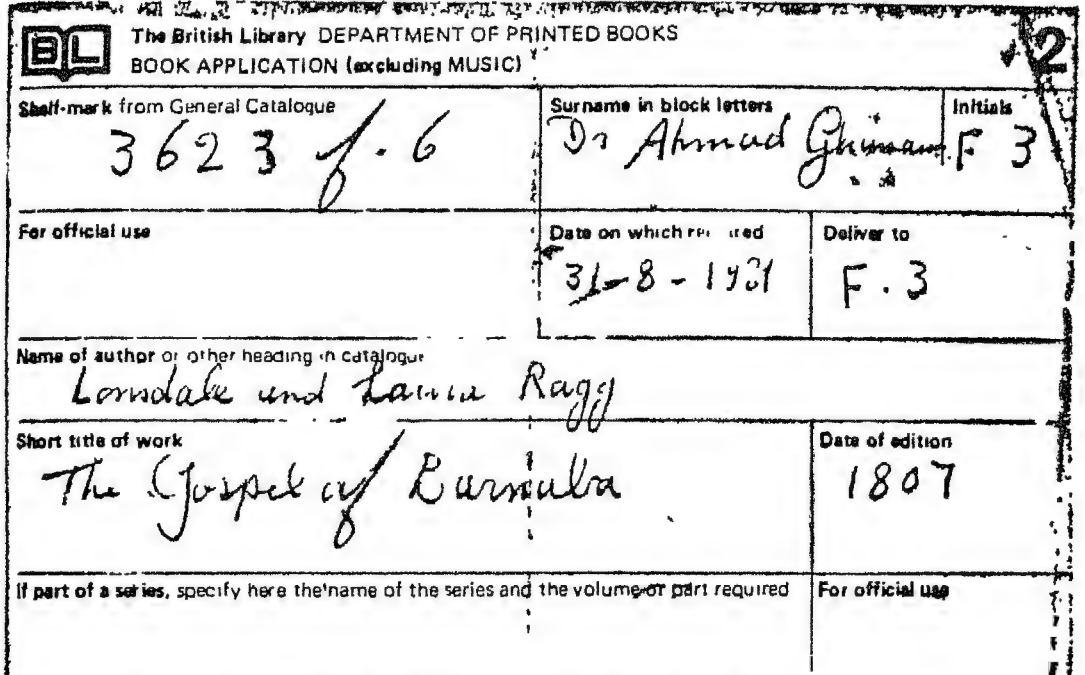 BL The British Library DEPARTMENT OF PRINTED BOOKS
BOOK APPLICATION (excluding MUSIC)
2
Shelf-mark from General Catalogue
3623 f. 6
Surname in block letters
Dr Ahmad
Initials
F 3
For official use
Date on which
31-8-
Deliver to
F.3
Name of author or other heading in catalogue
Lonsdale and Laura Ragg
Short title of work
The Gospel of Barnaba
Date of edition
1807
If part of a series, specify here the name of the series and the volume or part required
For official use